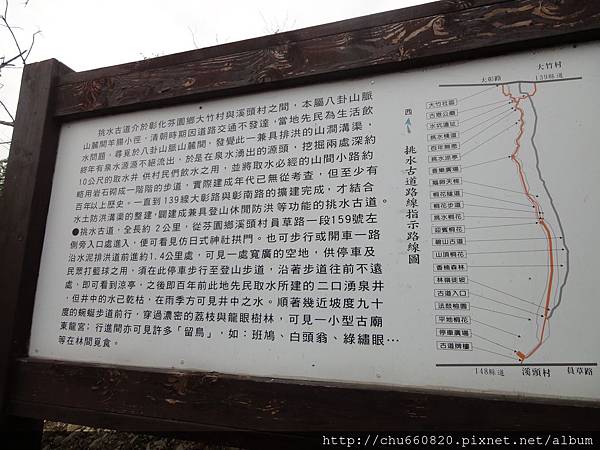 挑水古道介於彰化芬園鄉大竹村與溪頭村之間，本屬八卦山脈
山麓間羊腸小徑，清朝時期因道路交通不發達，當地先民為生活飲
水問題，尋覓於八卦山脈山麓間，發覺此一兼具排洪的山澗溝渠，
終年有泉水源源不絕流出，於是在泉水湧出的源頭，挖掘兩處深約
10公尺的取水井 供村民們飲水之用，並將取水必經的山間小路約
略用岩石砌成一階階的步道，實際建成年代已無從考查，但至少有
百年以上歷史。一直到 139線大彰路與彰南路的擴建完成，才結合
水土防洪溝渠的整建，闢建成兼具登山休閒防洪 等功能的挑水古道。
●挑水古道，全長約 2公里，從芬園鄉溪頭村員草路一段159號左
側旁入口處進入，便可看見仿日式神社拱門。也可步行或開車一路
沿水泥排洪道前進約1.4公里處，可見一處寬廣的空地，供停車及
民眾打籃球之用，須在此停車步行至登山步道，沿著步道往前不遠
處，即可看到涼亭，之後即百年前此地先民取水所建的二口湧泉井
，但井中的水已乾枯，在雨季方可見井中之水。順著幾近坡度九十
度的蜿蜒步道前行，穿過濃密的荔枝與龍眼樹林，可見一小型古廟
東龍宮；行進間亦可見許多「留鳥」，如：班鳩、白頭翁、綠繡眼…
等在林間覓食。
西
挑水古道路線指示路線圖
大竹村
大彰路 139縣道
大竹社區
古意公廟
水式遺址
挑水棧道
百年湧泉
挑水涼亭
音樂廣場
桐花隧道
桐花步道
挑水桐花
迎賓桐花
碧山古道
山頂桐花
香楠森林
林嶺徒坡
古道入口
法鼓柚園
平地桐花
停車廣場
古道牌樓
148縣道 溪頭村 員草路
http://chu660820.pixnet.net/album